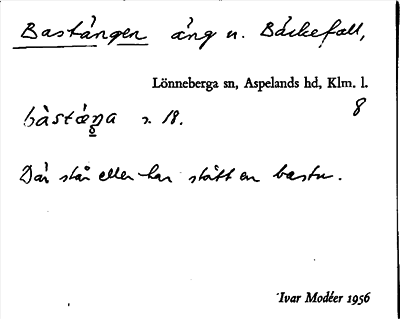 Bastängen äng u. Bäckefall,
Lönneberga sn, Aspelands hd, Klm. l.
8
bàstæŋa s. 18.
Där står eller har stått en bastu.
Ivar Modéer 1956